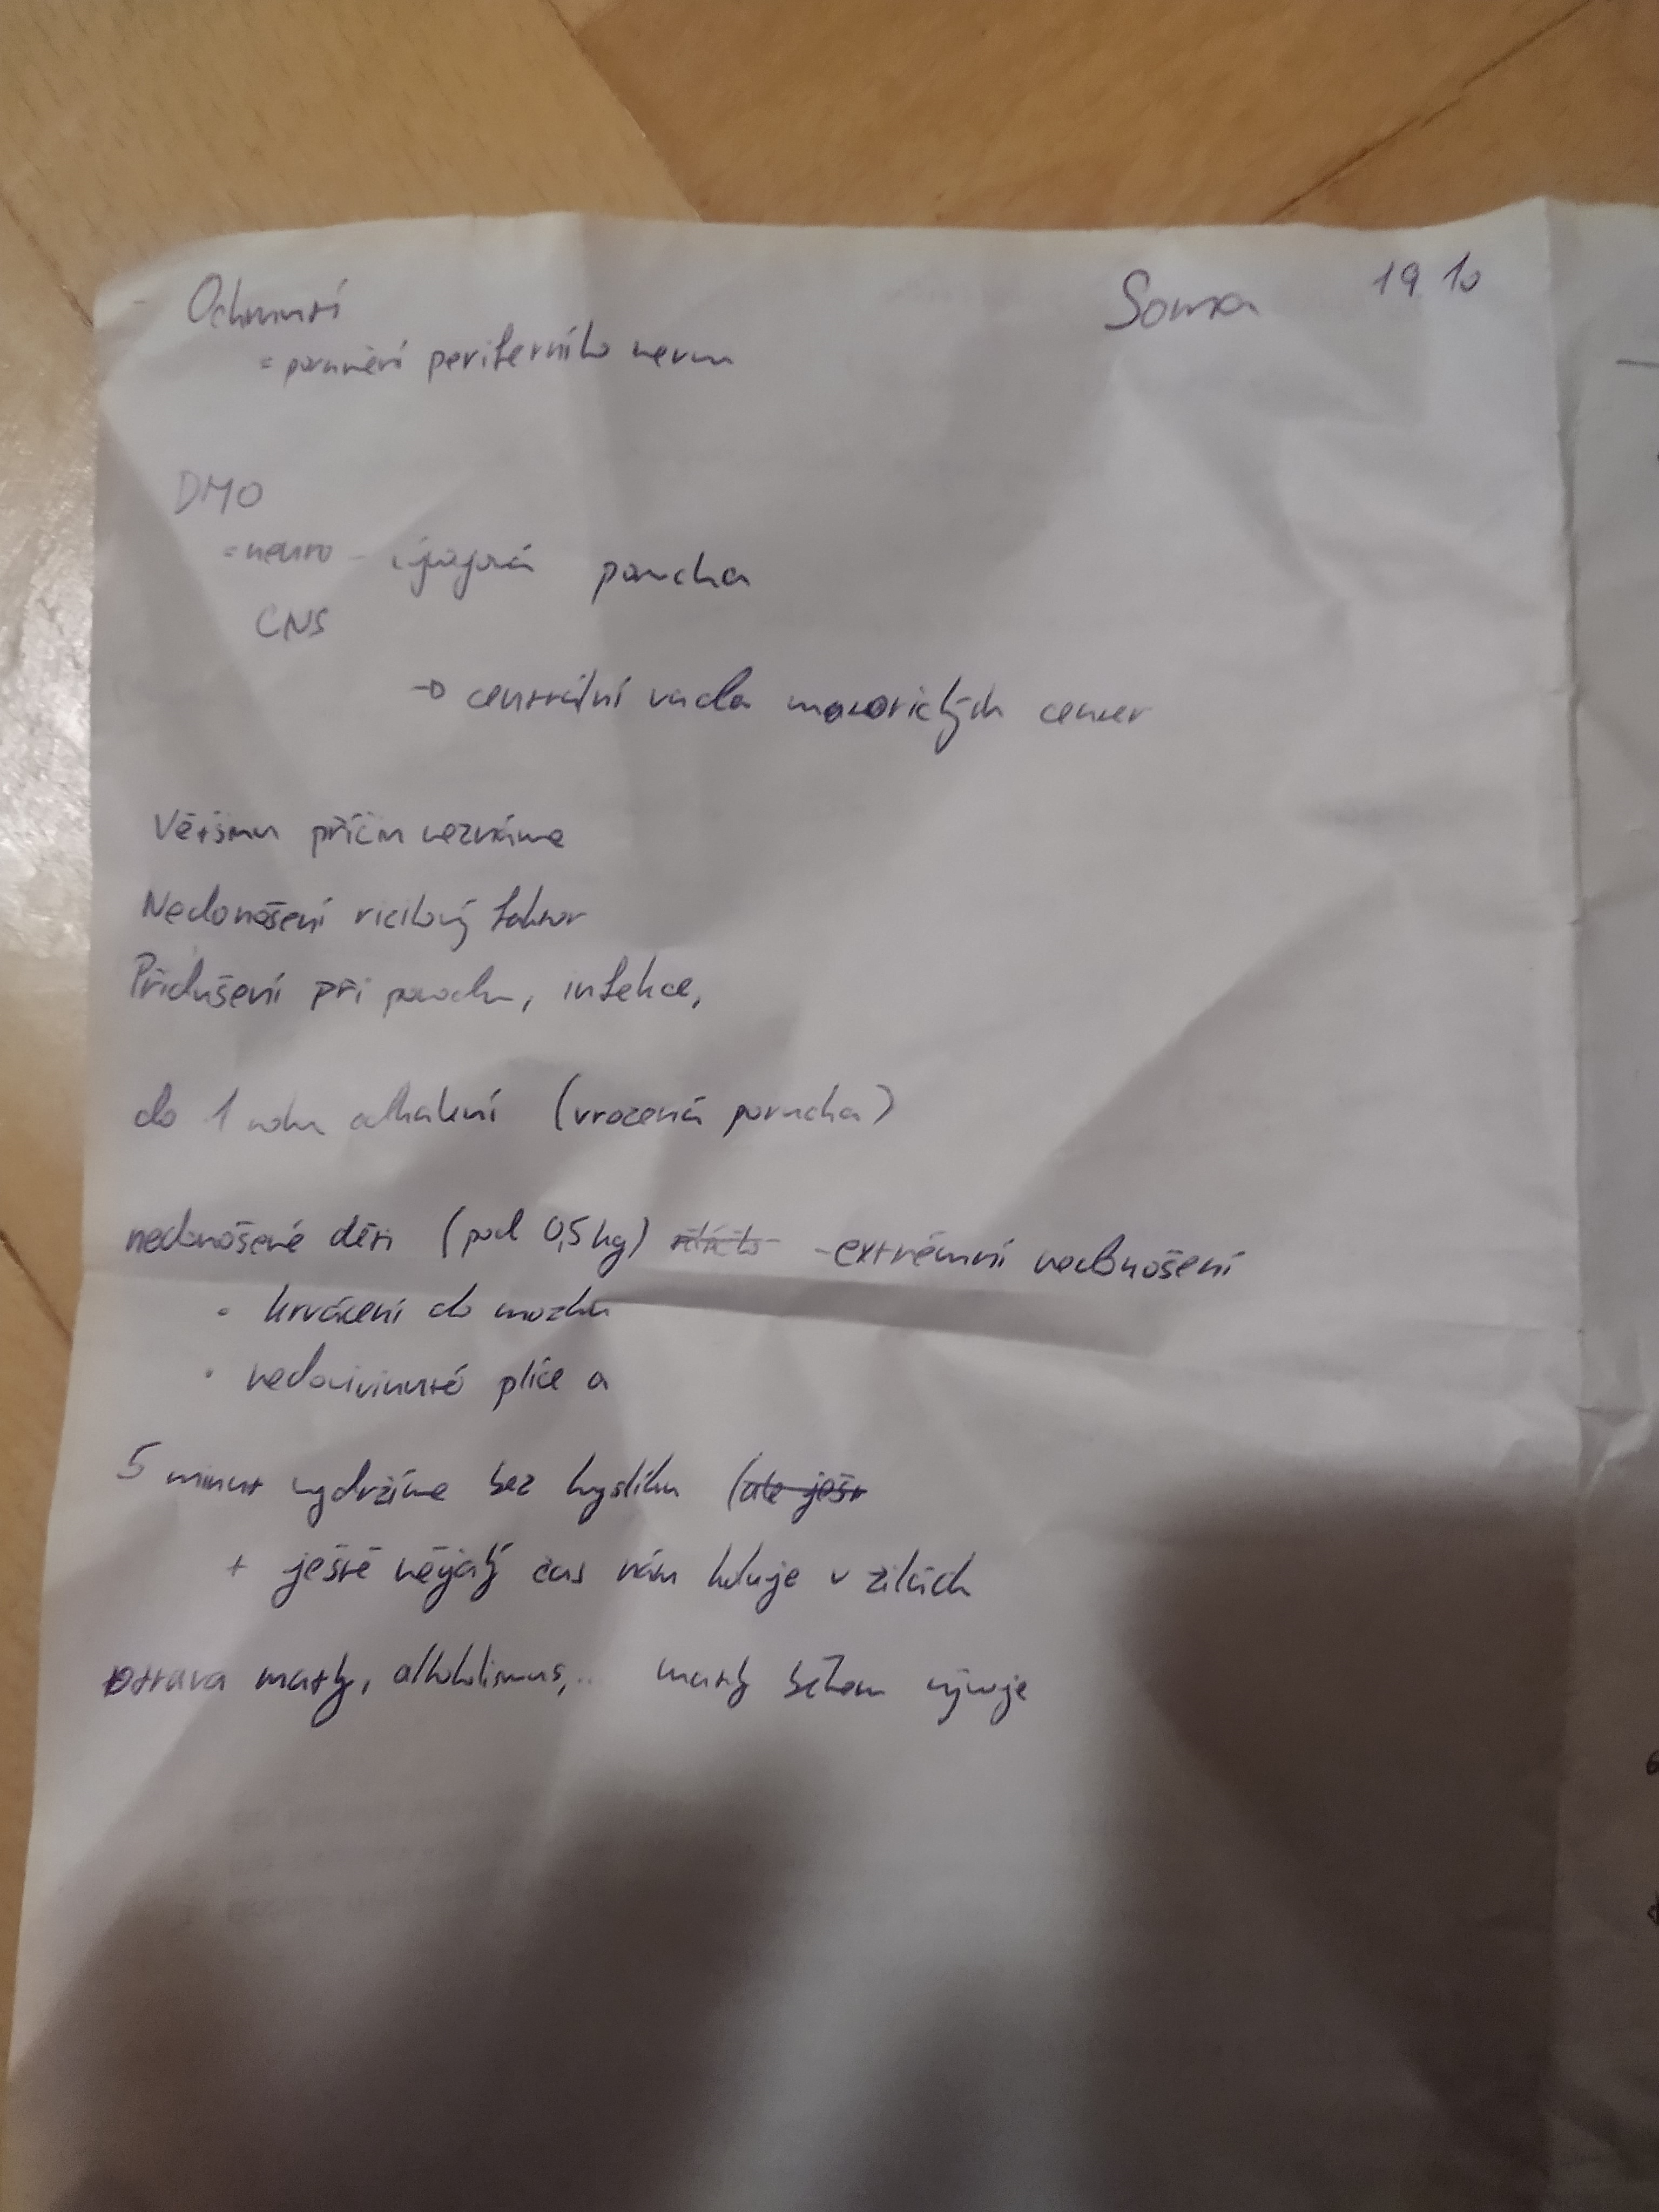 Ochrnutí
Soma 19.10
= porušení periferního nervu
DMO
= neuro - vývojová porucha
CNS
→ centrální vada motorických center
Většinu příčin neznáme
Nedonošení rizikový faktor
Přidušení při porodu, infekce,
do 1 roku odhalení (vrozená porucha)
nedonošené děti (pod 0,5 kg) - extrémní nedonošení
• krvácení do mozku
• nedovivinuté plíce a
5 minut vydržíme bez kyslíku (ale ješt
+ ještě nějaký čas nám koluje v žilách
otrava matky, alkoholismus,... matky během vývoje